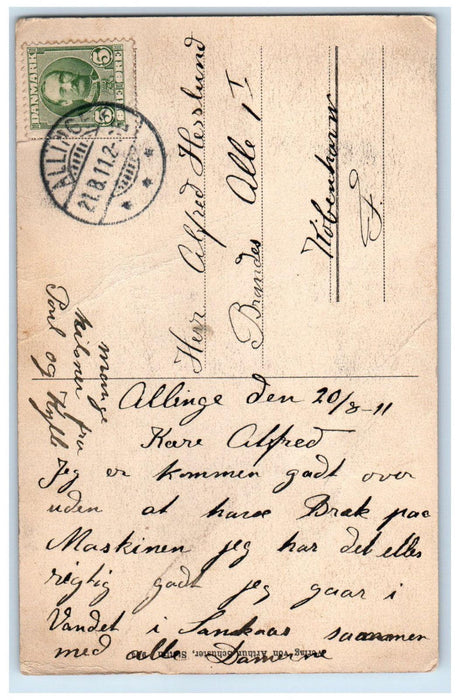 DANMARK
5 5
ØRE
ALLINGE
21.8.11.2-
Herr Alfred Herslund
Brandes Alle 1 I
København
F.
Allinge den 20/8-11
Kære Alfred
Jeg er kommen godt over
uden at have Bræk paa
Maskinen jeg har det elles
rigtig godt jeg gaar i
Vandet i Sandkaas sammen
med alle Damerne
mange
hilsner fra
Poul og
Verlag von Arthur Schuster, Stettin